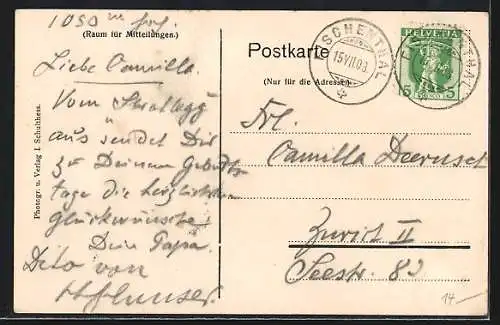 1050 m
(Raum für Mitteilungen.)
Liebe Camilla.
Vom
aus sendet Dir
zu Deinem Geburts-
tage die herzlichsten
Glückwünsche
Dein Papa.
Dito von
Photogr. u. Verlag I. Schulthess.
Postkarte
(Nur für die Adresse)
ESCHENTHAL
15 VII 09
HELVETIA
5 5
Frl.
Camilla
Zürich II
Seestr. 82
14–